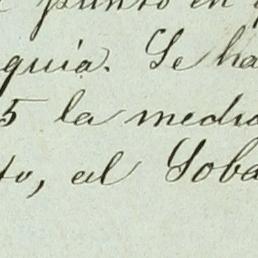 punto en
quia. Se ha
5 la media
to, al Soba